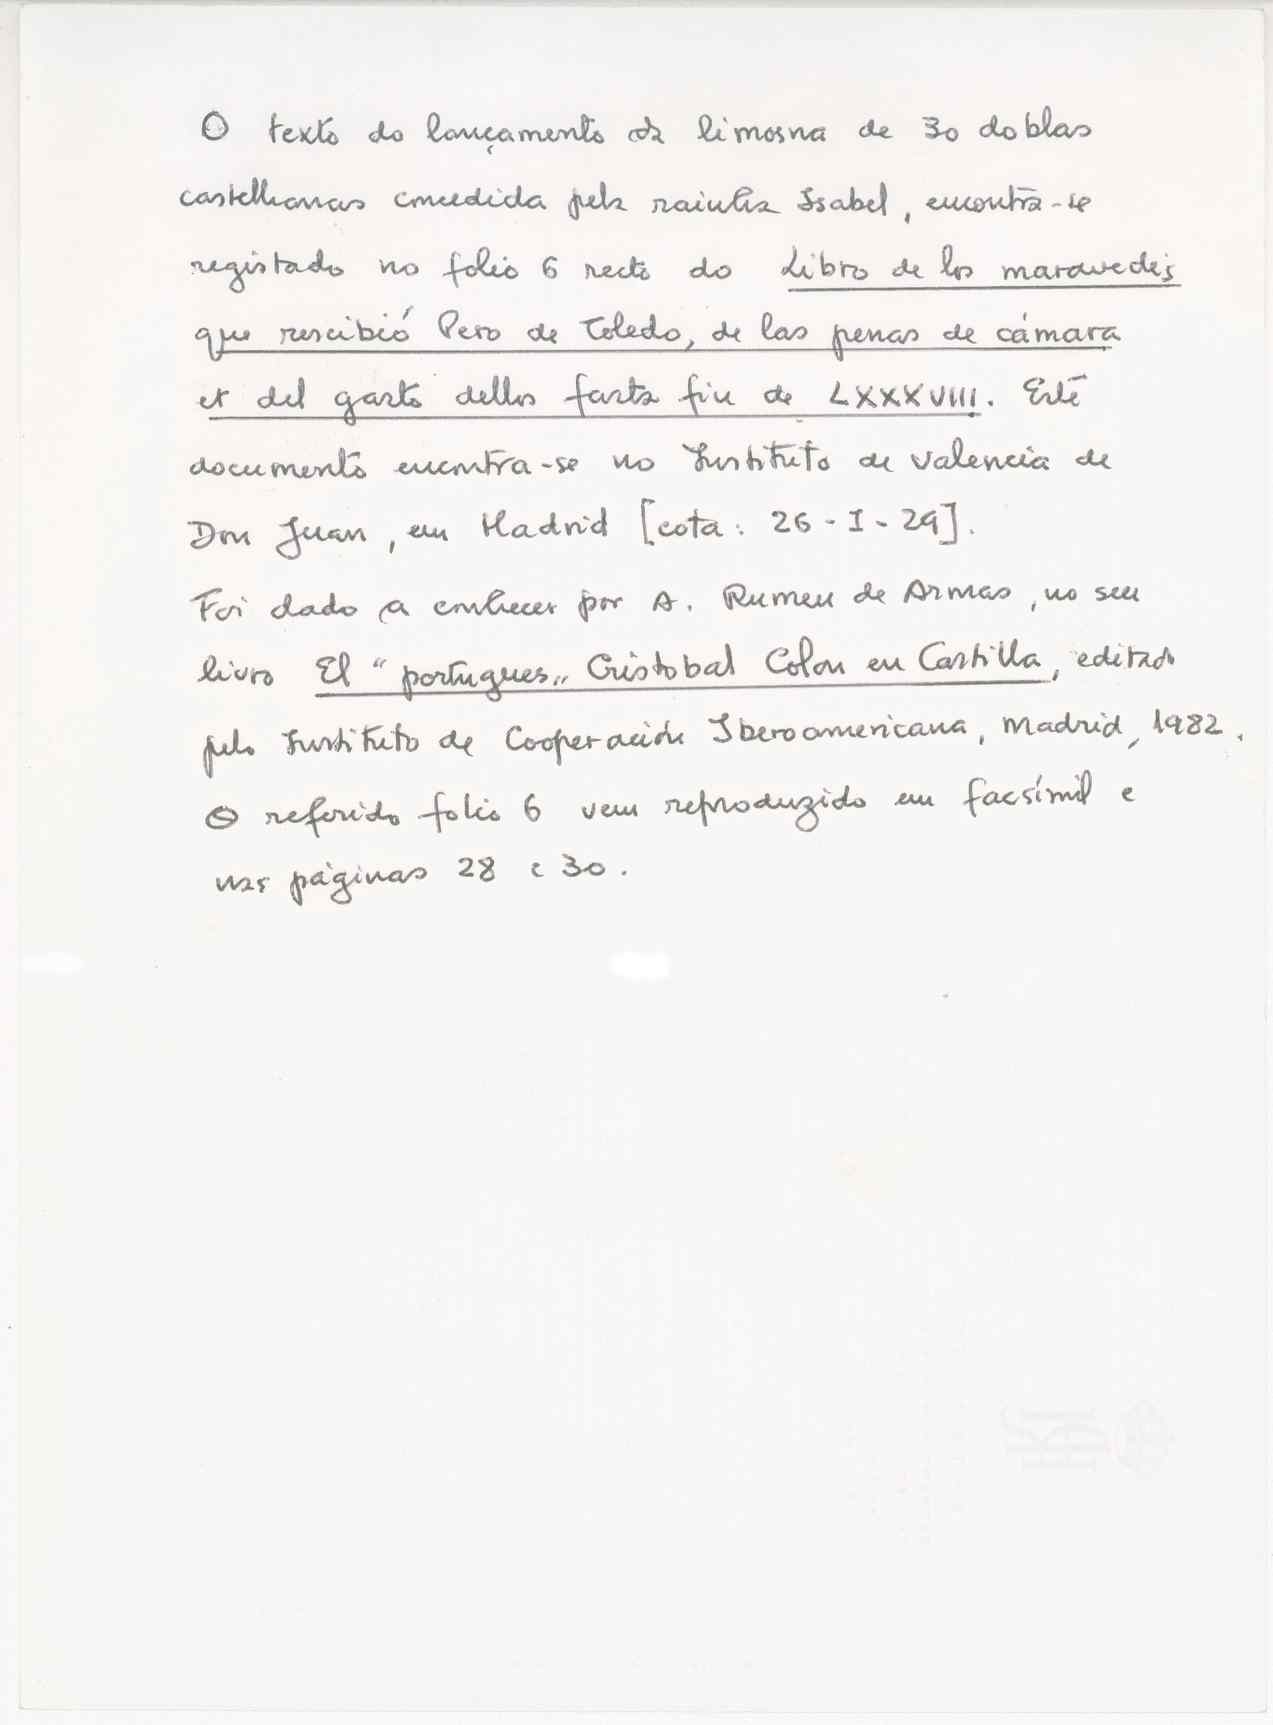 O texto do lançamento da limosna de 30 doblas
castelhanas concedida pela rainha Isabel, encontra-se
registado no folio 6 recto do Libro de los maravedis
que rescibió Pero de Toledo, de las penas de cámara
et del gasto dellos fasta fin de LXXXVIII. Este
documento encontra-se no Instituto de Valencia de
Don Juan, em Madrid [cota: 26-I-29].
Foi dado a conhecer por A. Rumeu de Armas, no seu
livro El "portugues„ Cristobal Colon en Castilla, editado
pelo Instituto de Cooperación Iberoamericana, Madrid, 1982.
O referido folio 6 vem reproduzido em facsímil e
nas páginas 28 e 30.